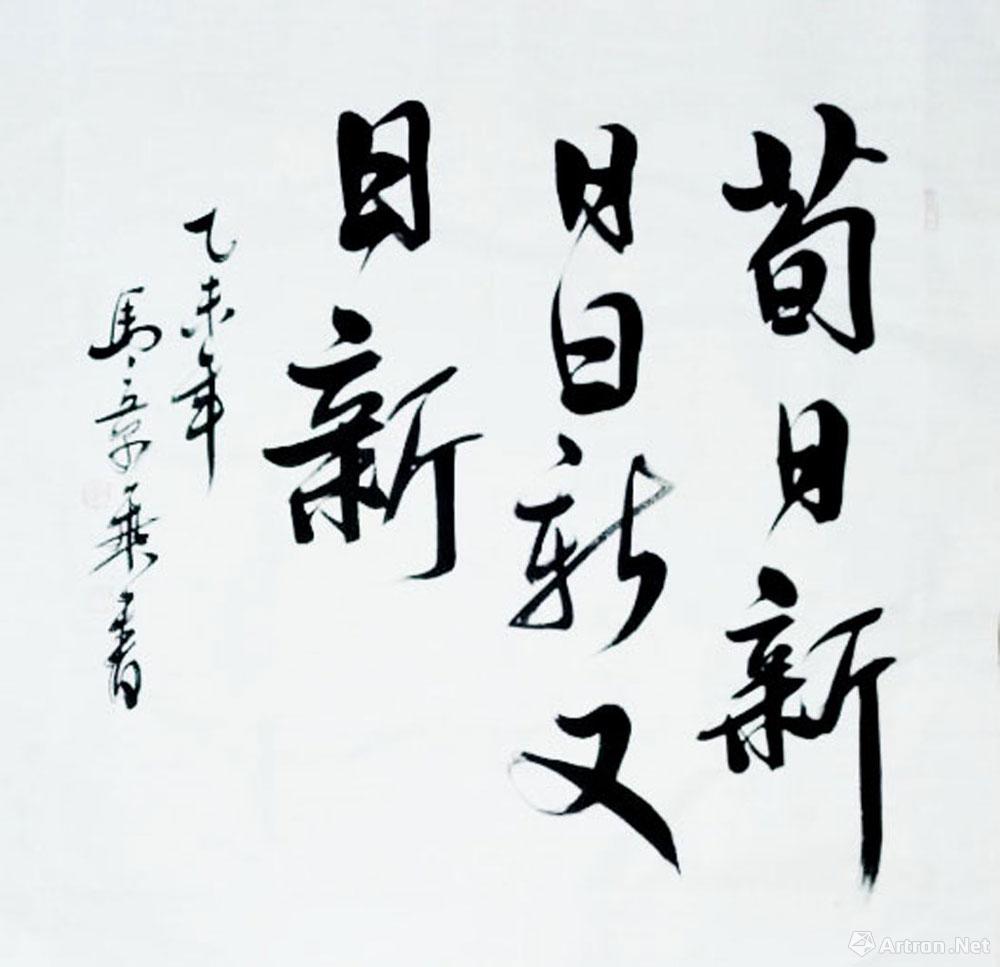 荀日新
日日新又
日新
乙未年
馬景書
Artron.Net